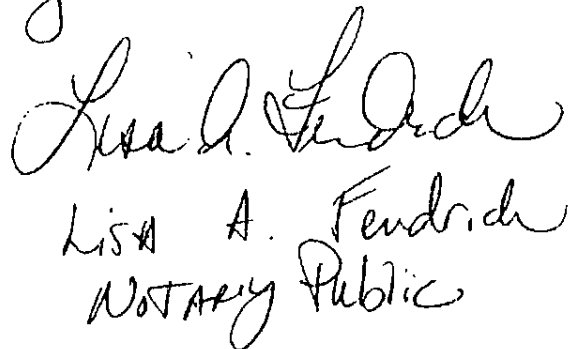 Lisa A. Fendrich
Lisa A. Fendrich
Notary Public